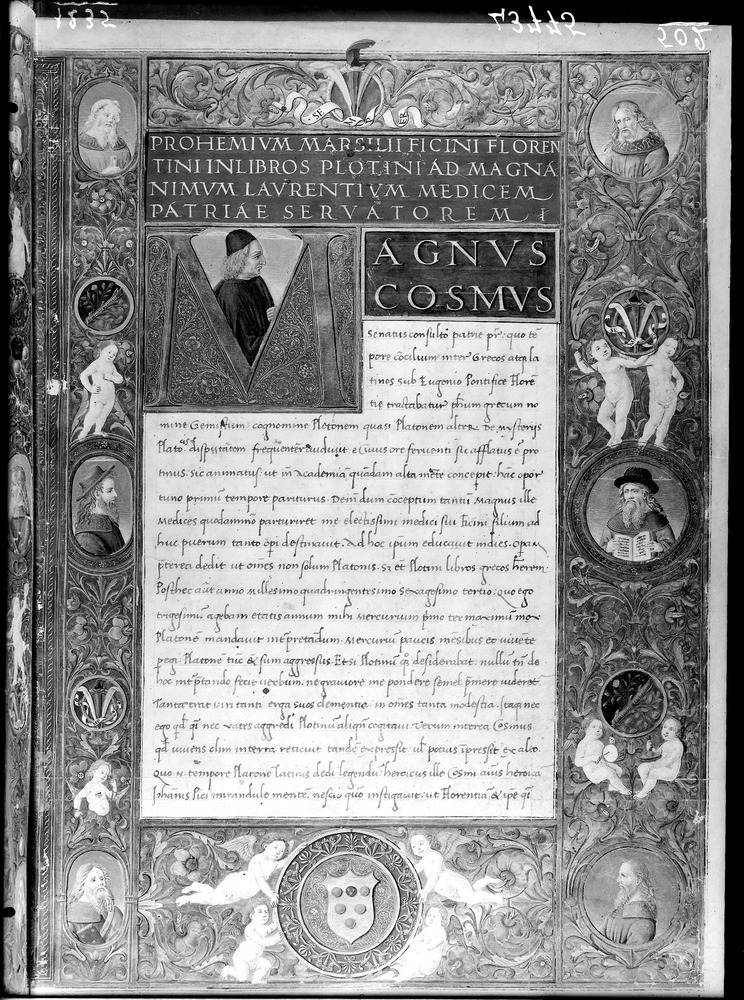 SEMPER
PROHEMIVM MARSILII FICINI FLOREN
TINI IN LIBROS PLOTINI AD MAGNA
NIMVM LAVRENTIVM MEDICEM
PATRIAE SERVATOREM
MAGNVS
COSMVS
Senatus consulto patrie pr̄: quo tē
pore cōcilium inter Grecos atq̧ la
tinos sub Eugenio Pontifice Florē
tie tractabatur ph̄um grecum no
mine Gemistum cognomine Pletonem quasi Platonem alterū de mysteriis
disputātem frequenter audiuit e cuius ore feruenti sic afflatus ē pro
tinus. sic animatus: ut in Academiā quādam alta mēte concepit. hāc opor
tuno primū tempore pariturus. Dein dum cōceptum tantū Magnus ille
Medices quodammō parturiret me electissimi medici sui Ficini filium ad
huc puerum tanto destinauit. Ad hoc ipsum educauit indies.
p̄terea dedit ut oīnes non solum Platonis. Sȝ et Plotini libros grecos h̄erem.
Post hec aūt anno Millesimo quadringentesimo Sexagesimo tertio. quo ego
trigesimū agebam etatis annum mihi Mercurium p̄mo ter maximū mox
Platonē mandauit interpretādum. Mercuriū paucis mēsibus eo uiuēte
peregi. Platonē tūc & sum aggressus. Etsi Plotinū qq̧ desiderabat. nullū tn̄ de
hoc interp̄tando fecit uerbum. ne grauiore me pondere semel p̄mere uideret
Tanta erat uiri tanti erga suos clementia in oīnes tanta modestia. Itaq̧ nec
ego qd̄ nec uates aggredi Plotinū aliqn̄ cogitaui. Verum interea Cosmus
qd uiuens olim in terra reticuit tandē expressit. ul̄ potius īpressit ex alto.
Quo .n. tempore Platonē latinis dedi legendū. heroicus ille Cosmi aīus heroica
Iohānis Pici mirandule mentē nescio quo instigauit: ut Florentiā & ipse